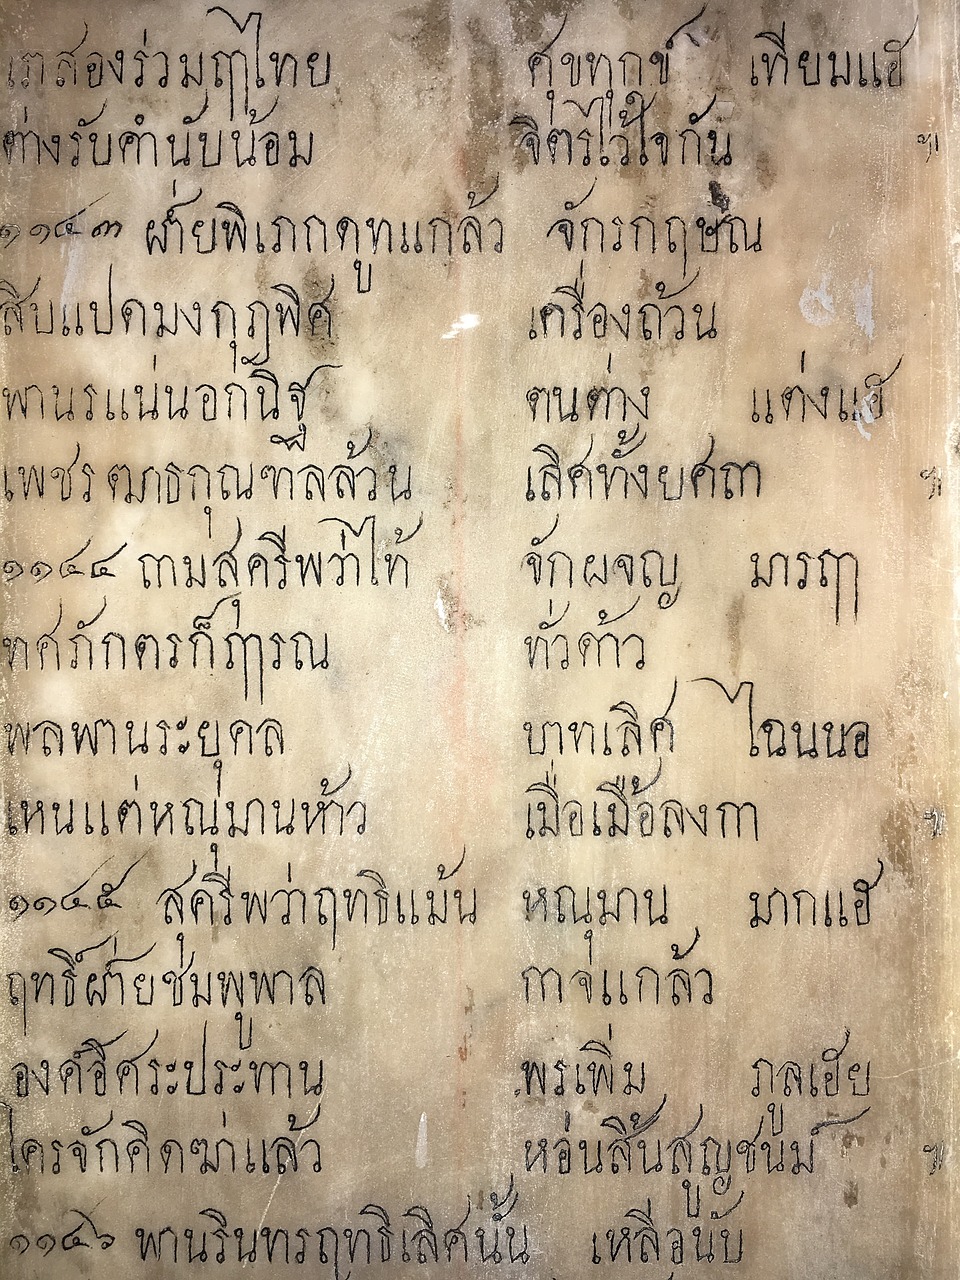 เราสองร่วมฤๅไทย ศุขทุกข์ เทียมแฮ
ต่างรับคำนับน้อม จิตรไว้ใจกัน ฯ
๑๑๔๓ ฝ่ายพิเภกดูทแกล้ว จักรกฤษณ
สิบแปดมงกุฎพิศ เครื่องถ้วน
พานรแน่นอกนิฐ ตนต่าง แต่งแฮ
เพชรฅาธกุณฑลล้วน เลิศทั้งยศถา ฯ
๑๑๔๔ ถามสุครีพว่าไท้ จักผจญ มารฤๅ
ทศภักตรก็ฤๅรณ ทั่วด้าว
พลพานระยุคล บาทเลิศ ไฉนนอ
เหนแต่หณุมานห้าว เมื่อเมื้อลงกา ฯ
๑๑๔๕ สุครีพว่าฤทธิแม้น หณุมาน มากแฮ
ฤทธิ์ฝ่ายชมพูพาล กาจแกล้ว
องค์อิศระประทาน พรเพิ่ม ภูลเฮย
ใครจักคิดฆ่าแล้ว ห่อนสิ้นสูญชนม์ ฯ
๑๑๔๖ พานรินทรฤทธิเลิศนั้น เหลือนับ